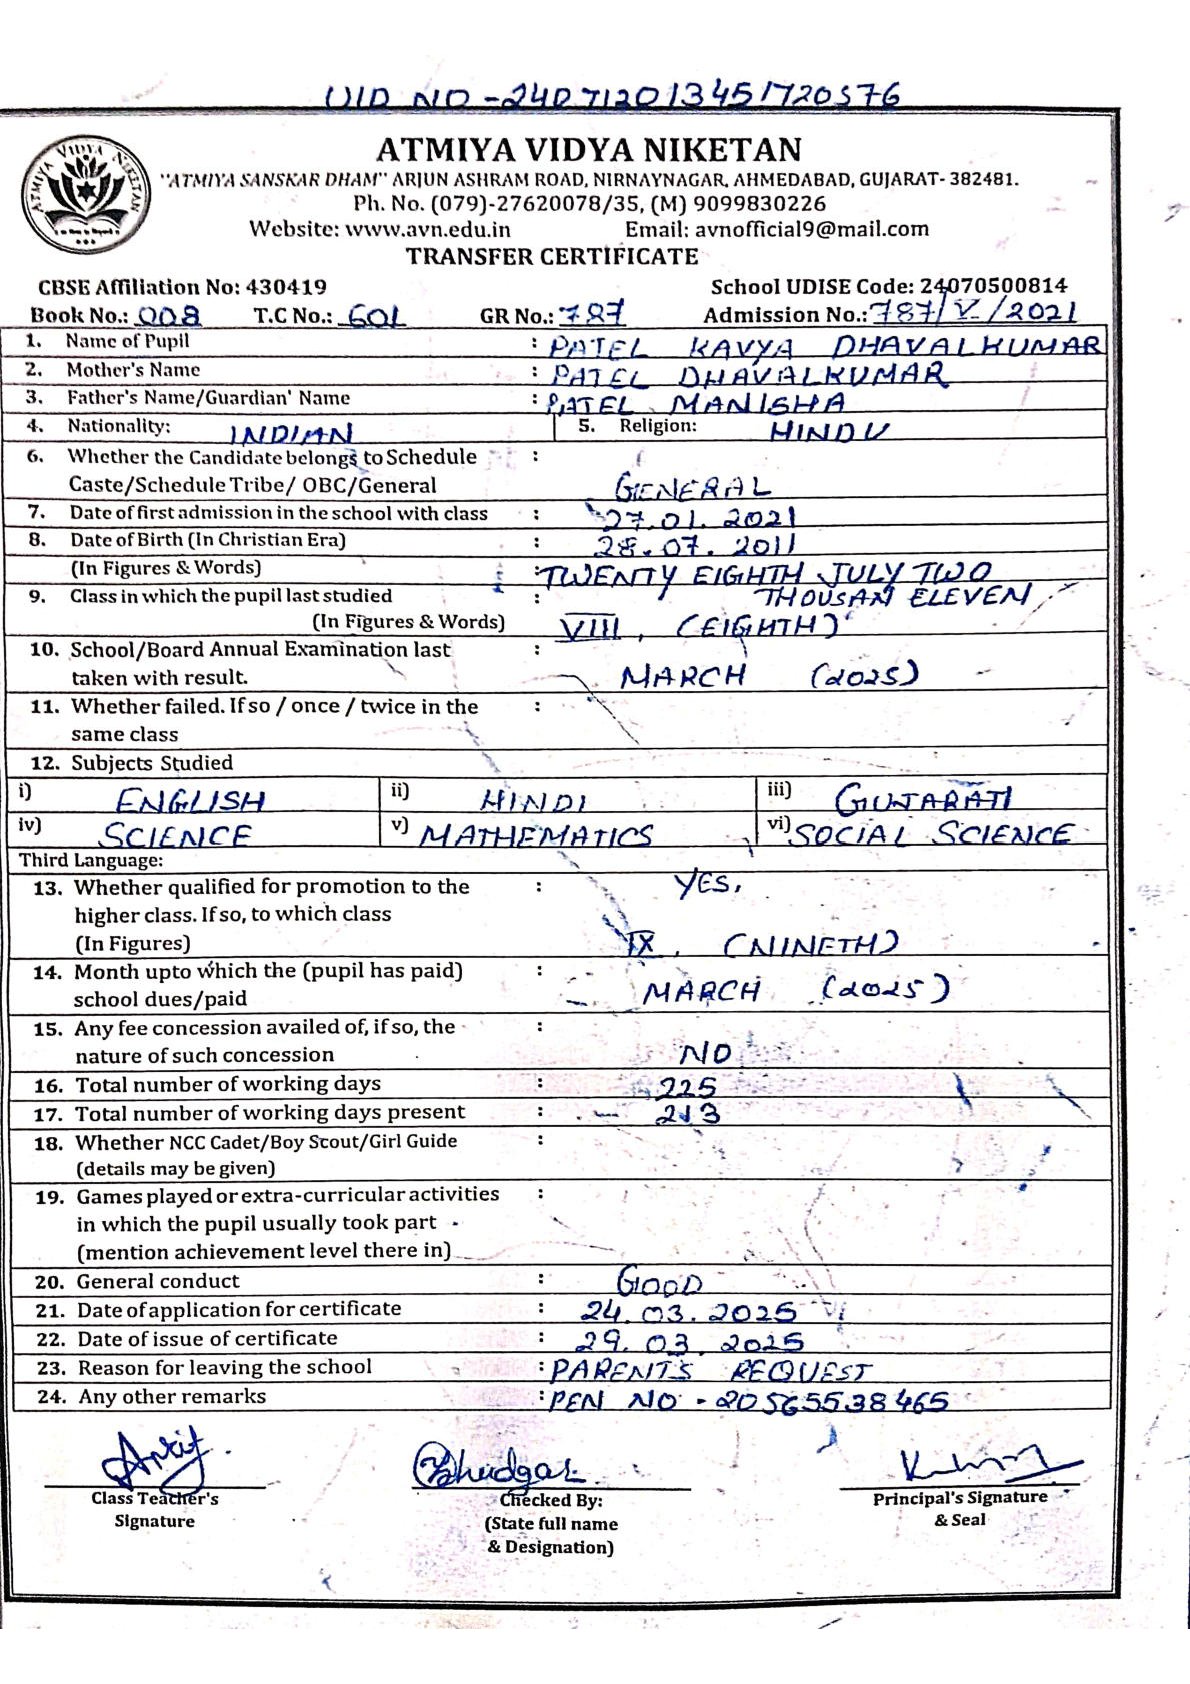 UID NO - 240712013451720576
ATMIYA VIDYA NIKETAN
ATMIYA VIDYA NIKETAN
"ATMIYA SANSKAR DHAM" ARJUN ASHRAM ROAD, NIRNAYNAGAR, AHMEDABAD, GUJARAT- 382481.
Ph. No. (079)-27620078/35, (M) 9099830226
Website: www.avn.edu.in Email: avnofficial9@mail.com
TRANSFER CERTIFICATE
CBSE Affiliation No: 430419 School UDISE Code: 24070500814
Book No.: 008 T.C No.: 601 GR No.: 787 Admission No.: 787/V/2021
1. Name of Pupil : PATEL KAVYA DHAVALKUMAR
2. Mother's Name : PATEL DHAVALKUMAR
3. Father's Name/Guardian' Name : PATEL MANISHA
4. Nationality: INDIAN 5. Religion: HINDU
6. Whether the Candidate belongs to Schedule :
Caste/Schedule Tribe/ OBC/General GENERAL
7. Date of first admission in the school with class : 27.01.2021
8. Date of Birth (In Christian Era) : 28.07.2011
(In Figures & Words) : TWENTY EIGHTH JULY TWO
9. Class in which the pupil last studied : THOUSAN ELEVEN
(In Figures & Words) VIII, (EIGHTH)
10. School/Board Annual Examination last :
taken with result. MARCH (2025)
11. Whether failed. If so / once / twice in the :
same class
12. Subjects Studied
i) ENGLISH ii) HINDI iii) GUJARATI
iv) SCIENCE v) MATHEMATICS vi) SOCIAL SCIENCE
Third Language:
13. Whether qualified for promotion to the : YES,
higher class. If so, to which class
(In Figures) IX, (NINETH)
14. Month upto which the (pupil has paid) :
school dues/paid MARCH (2025)
15. Any fee concession availed of, if so, the :
nature of such concession NO
16. Total number of working days : 225
17. Total number of working days present : 213
18. Whether NCC Cadet/Boy Scout/Girl Guide :
(details may be given)
19. Games played or extra-curricular activities :
in which the pupil usually took part
(mention achievement level there in)
20. General conduct : GOOD
21. Date of application for certificate : 24.03.2025
22. Date of issue of certificate : 29.03.2025
23. Reason for leaving the school : PARENT'S REQUEST
24. Any other remarks : PEN NO - 20565538465
Ankit
Class Teacher's Checked By: Principal's Signature
Signature (State full name & Seal
& Designation)